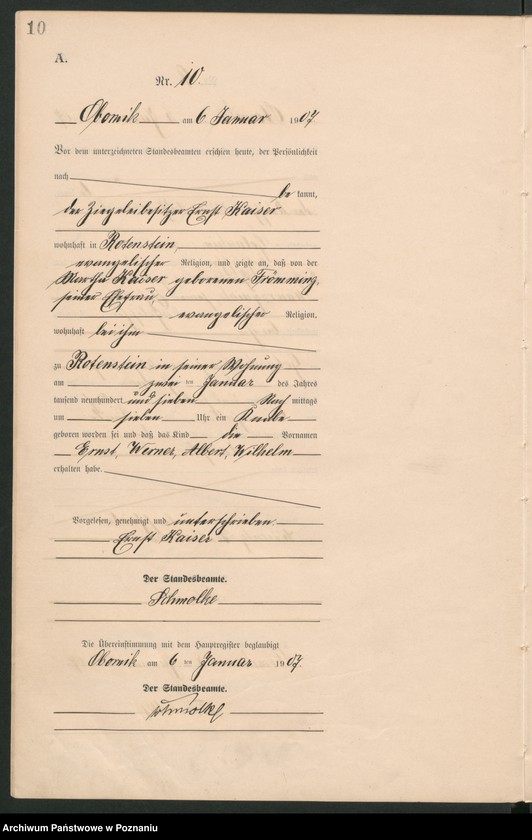 10
A.
Nr. 10.
Obornik am 6 Januar 1907
Vor dem unterzeichneten Standesbeamten erschien heute, der Persönlichkeit
nach be kannt,
der Ziegeleibesitzer Ernst Kaiser
wohnhaft in Rotenstein,
evangelischer Religion, und zeigte an, daß von der
Martha Kaiser geborenen Frömming,
seiner Ehefrau
evangelischer Religion,
wohnhaft bei ihm
zu Rotenstein in seiner Wohnung
am zwei ten Januar des Jahres
tausend neunhundert und sieben Nach mittags
um sieben Uhr ein Knabe
geboren worden sei und daß das Kind die Vornamen
Ernst, Werner, Albert, Wilhelm
erhalten habe.
Vorgelesen, genehmigt und unterschrieben
Ernst Kaiser
Der Standesbeamte.
Schmolke
Die Übereinstimmung mit dem Hauptregister beglaubigt
Obornik am 6 ten Januar 1907.
Der Standesbeamte.
Schmolke
Archiwum Państwowe w Poznaniu